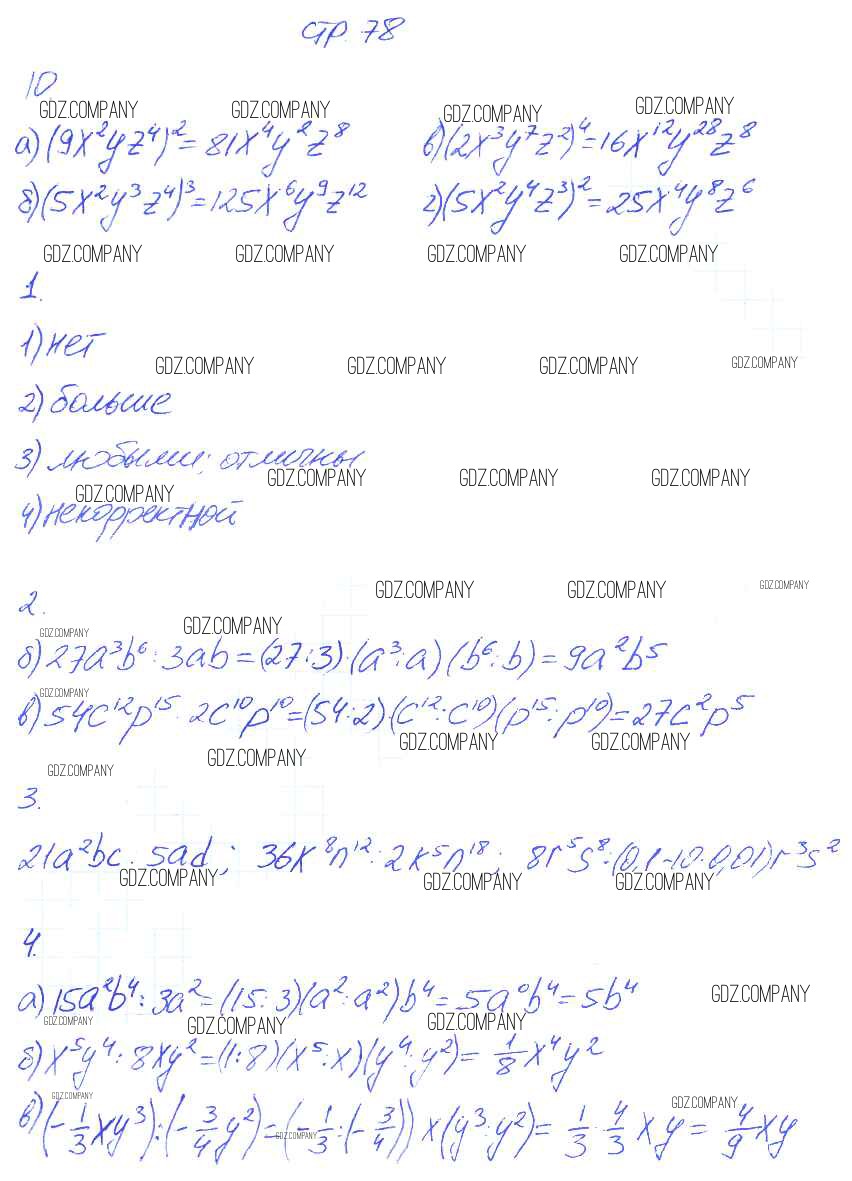 стр. 78
10
GDZ.COMPANY GDZ.COMPANY GDZ.COMPANY GDZ.COMPANY
а) (9x²yz⁴)² = 81x⁴y²z⁸ в) (2x³y⁷z²)⁴ = 16x¹²y²⁸z⁸
б) (5x²y³z⁴)³ = 125x⁶y⁹z¹² г) (5x²y⁴z³)² = 25x⁴y⁸z⁶
GDZ.COMPANY GDZ.COMPANY GDZ.COMPANY GDZ.COMPANY
1.
1) нет
GDZ.COMPANY GDZ.COMPANY GDZ.COMPANY GDZ.COMPANY
2) больше
3) любыми; отличны
GDZ.COMPANY GDZ.COMPANY GDZ.COMPANY GDZ.COMPANY
4) некорректной
GDZ.COMPANY GDZ.COMPANY GDZ.COMPANY
2.
GDZ.COMPANY GDZ.COMPANY
б) 27a³b⁶ : 3ab = (27:3)·(a³:a) (b⁶:b) = 9a²b⁵
GDZ.COMPANY
в) 54c¹²p¹⁵ : 2c¹⁰p¹⁰ = (54:2)·(c¹²:c¹⁰)(p¹⁵:p¹⁰) = 27c²p⁵
GDZ.COMPANY GDZ.COMPANY GDZ.COMPANY GDZ.COMPANY
3.
21a²bc : 5ad; 36x⁸n¹² : 2x⁵n¹⁸; 8r⁵s⁸ : (0,1·10·0,01)r³s²
GDZ.COMPANY GDZ.COMPANY GDZ.COMPANY
4.
а) 15a²b⁴ : 3a² = (15:3)(a²:a²)b⁴ = 5a⁰b⁴ = 5b⁴
GDZ.COMPANY GDZ.COMPANY GDZ.COMPANY GDZ.COMPANY
б) x⁵y⁴ : 8xy² = (1:8)(x⁵:x)(y⁴:y²) = 1/8 x⁴y²
GDZ.COMPANY GDZ.COMPANY
в) (-1/3 xy³) : (-3/4 y²) = (-1/3 : (-3/4)) x (y³:y²) = 1/3 · 4/3 xy = 4/9 xy
GDZ.COMPANY